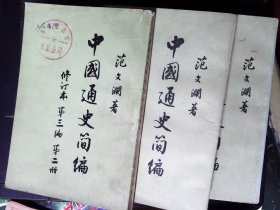 范文澜著
中國通史简编
修订本 第三编 第二册
范文澜著
中國通史简编
范文澜著